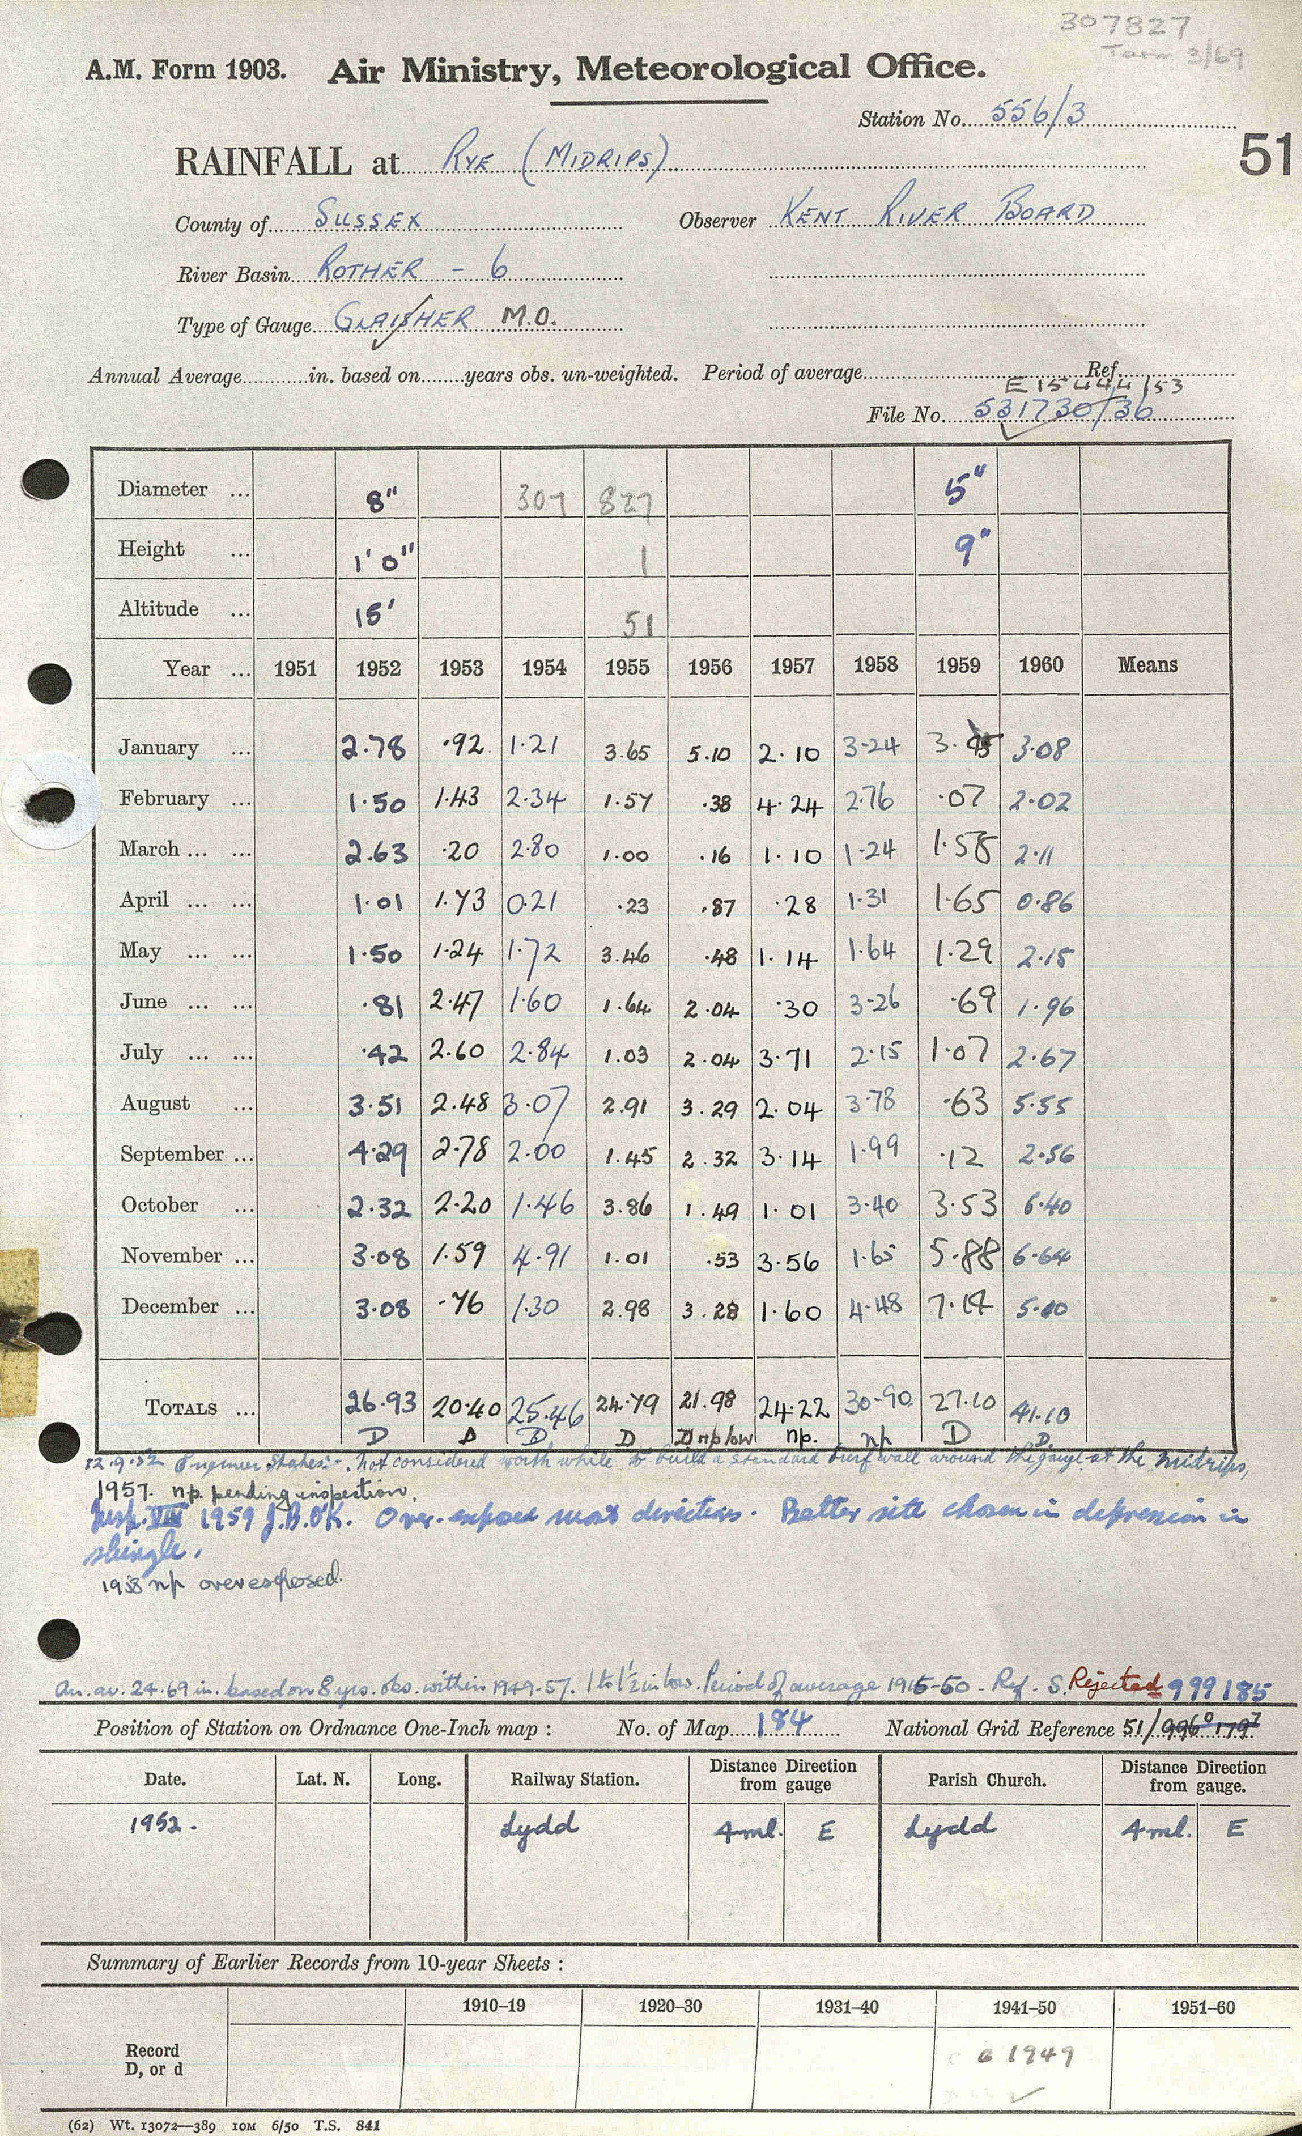 307827
A.M. Form 1903. Air Ministry, Meteorological Office.
Station No. 556/3
RAINFALL at RYE (MIDRIPS)
51
County of SUSSEX Observer KENT RIVER BOARD
River Basin ROTHER - 6
Type of Gauge GLAISHER M.O.
Annual Average in. based on years obs. un-weighted. Period of average Ref.
E 15444/53
File No. 531730/36
Diameter ... 8" 307 827 5"
Height ... 1'0" 1 9"
Altitude ... 15' 51
Year ... 1951 1952 1953 1954 1955 1956 1957 1958 1959 1960 Means
January ... 2.78 .92 1.21 3.65 5.10 2.10 3.24 3. 3.08
February ... 1.50 1.43 2.34 1.57 .38 4.24 2.76 .07 2.02
March ... ... 2.63 .20 2.80 1.00 .16 1.10 1.24 1.58 2.11
April ... ... 1.01 1.73 0.21 .23 .87 .28 1.31 1.65 0.86
May ... ... 1.50 1.24 1.72 3.46 .48 1.14 1.64 1.29 2.15
June ... ... .81 2.47 1.60 1.64 2.04 .30 3.26 .69 1.96
July ... ... .42 2.60 2.84 1.03 2.04 3.71 2.15 1.07 2.67
August ... 3.51 2.48 3.07 2.91 3.29 2.04 3.78 .63 5.55
September ... 4.29 2.78 2.00 1.45 2.32 3.14 1.99 .12 2.56
October ... 2.32 2.20 1.46 3.86 1.49 1.01 3.40 3.53 6.40
November ... 3.08 1.59 4.91 1.01 .53 3.56 1.65 5.88 6.64
December ... 3.08 .76 1.30 2.98 3.28 1.60 4.48 7.14 5.10
TOTALS ... 26.93 20.40 25.46 24.79 21.98 24.22 30.90 27.10 41.10
D D D D D np low np. np D D.
12.9.52 Engineer States:- not considered worth while to build a standard turf wall around the gauge at the Midrips,
1957. np pending inspection.
Insp. VIII 1959 J.B.O'K. Over-exposed most directions. Better site chosen in depression in
shingle.
1958 np overexposed.
An. av. 24.69 in. based on 8 yrs. obs. within 1949-57. 1 to 1½ in low. Period of average 1916-50. Ref. S. Rejected 999185
Position of Station on Ordnance One-Inch map : No. of Map 184 National Grid Reference 51/996⁰179⁷
Date. Lat. N. Long. Railway Station. Distance from gauge Direction Parish Church. Distance from gauge. Direction
1952. Lydd 4ml. E Lydd 4ml. E
Summary of Earlier Records from 10-year Sheets :
1910-19 1920-30 1931-40 1941-50 1951-60
Record
D, or d
1949
(62) Wt. 13072—389 10M 6/50 T.S. 841